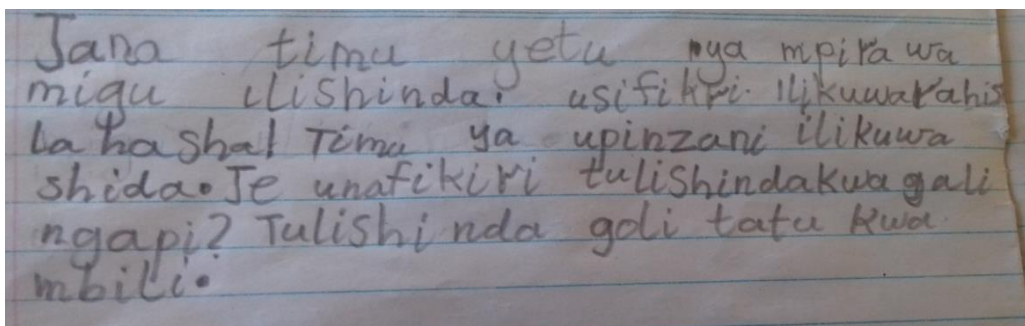 Jana timu yetu nya mpira wa
migu ilishinda. usifikri. Ilikuwarahis
La hasha! Timu ya upinzani ilikuwa
shida. Je unafikiri tulishindakwa gali
ngapi? Tulishinda goli tatu kwa
mbili.